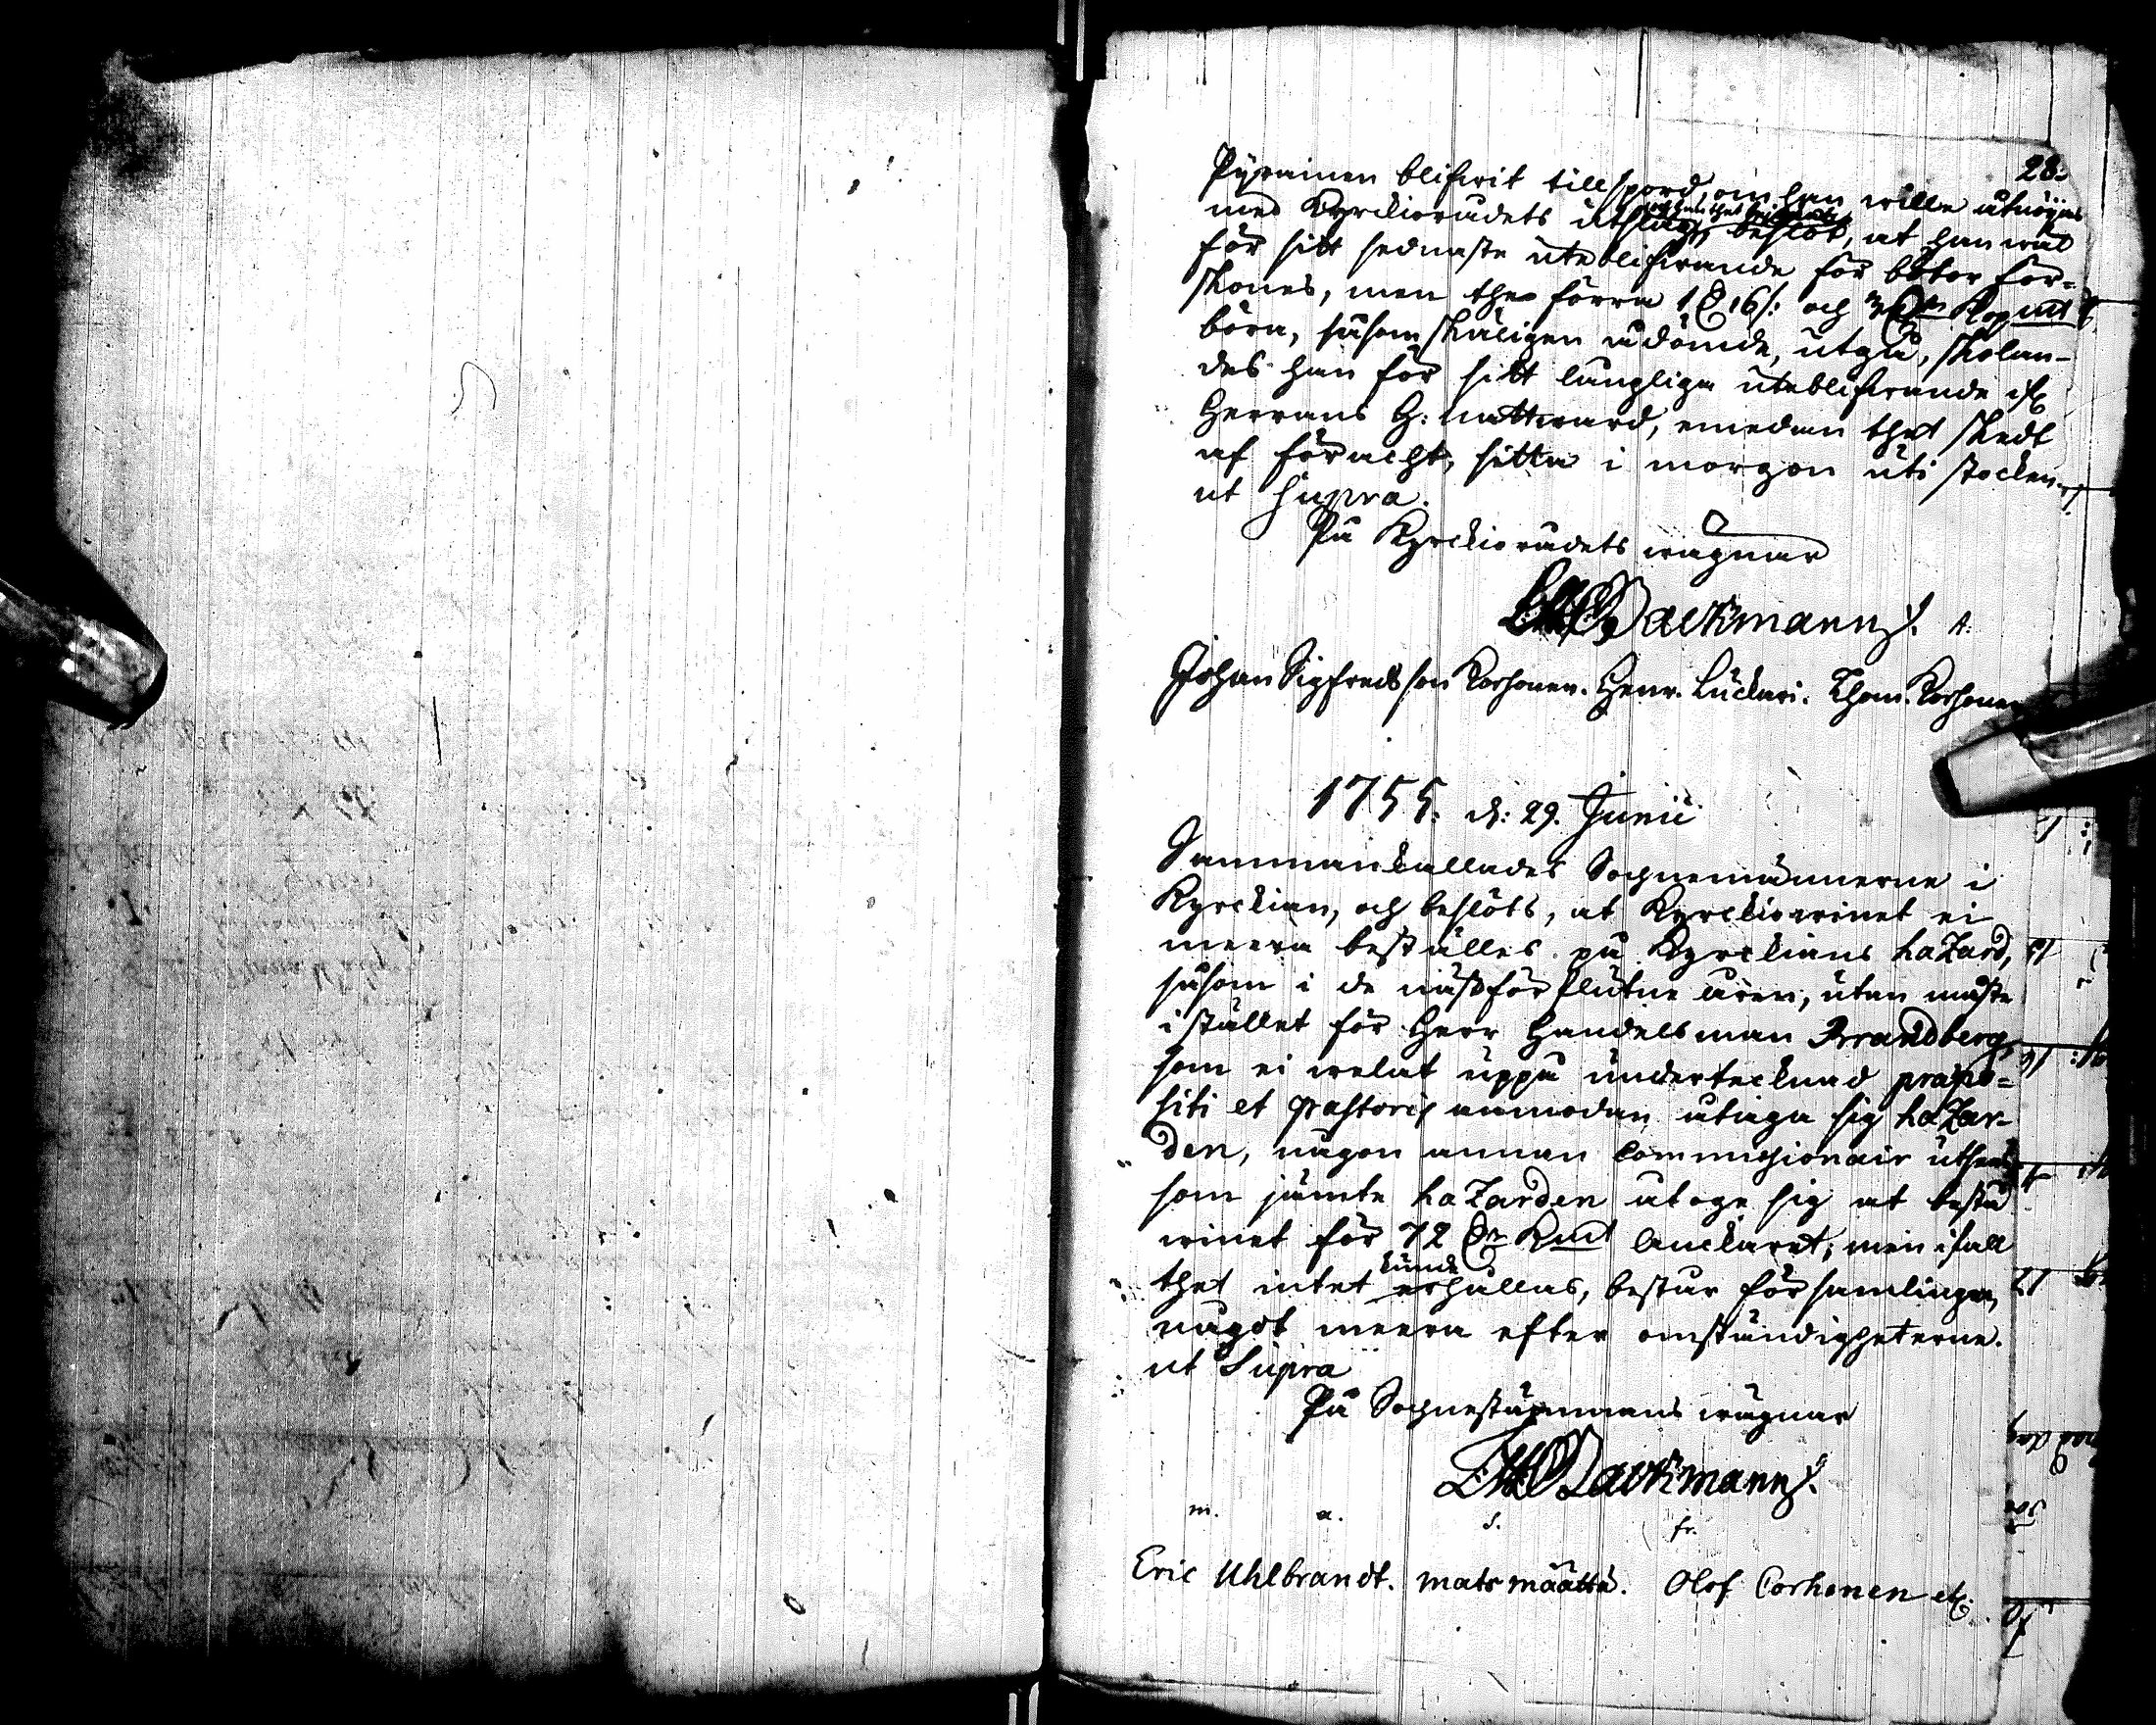 28.
Pyrainen blifwit tillspord, om han wille utnöjas
med Kyrckiorådets utslag, beslöt, at han wäl
för sitt sednaste uteblifwande för böter för-
skones, men the förra 1 16/: och Kopmt
böra, såsom skäligen ådömde, utgå, skolan-
des han för sitt langliga uteblifwande
Herrans H: nattward, emedan thet skedt
af föracht, sitta i morgon uti stocken.
ut supra.
På Kyrckiorådets wägnar
Backmann.
Johan Sigfredsson Korhonen. Henr. Luckari. Thom. Korhonen
1755. d: 29. Junii
Sammankallades Sochnemännerne i
Kyrckian, och beslöts, at Kyrckiowinet ei
meera beställes på Kyrckians haZard,
såsom i de näst förflutne åren, utan måste
i stället för Herr Handelsman Brandberg,
som ei welat uppå undertecknad præpo-
siti et Pastoris anmodan åtaga sig haZar-
den, någon annan Commissionair
som jämte haZarden åtoge sig at bestå
winet för 72 Kmt Anckaret; men ifall
thet intet kunde erhållas, består församlingen,
något meera efter omständigheterne.
ut Supra
På Sochnestämmans wägnar
Backmann.
m. a. S. fr.
Eric Uhlbrandt. mats määttä. Olof Corhonen etc.